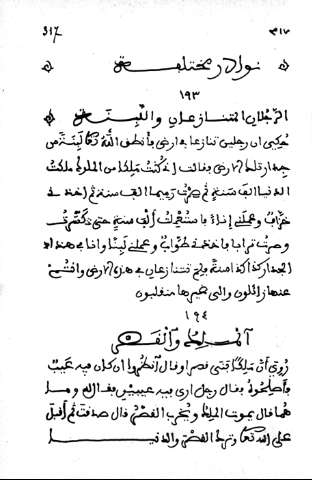 317 ٣١٧
نوادر مختلفة
١٩٣
الرجلان المتنازعان واللبنة
حُكي ان رجلين تنازعا في ارض فأنطق الله تعا لبنة من
جدار تلك الارض فقالت اني كنت ملكا من الملوك ملكت
الدنيا الف سنة ثم صرت رميما الف سنة ثم اخذني
خزاف وعملني اناء فاستعملت ألف سنة حتى تكسرت
وصرت ترابا فاخذني طواب وعملني لبنا وانا في هذا
الجدار كذا كذا سنة فلم تتنازعان في هذه الارض وانتم
عنها زائلون والى غيرها منقلبون
١٩٤
الملك والقصر
رُوي أن ملكا بنى قصرا وقال انظروا ان كان فيه عيب
فأصلحوه فقال رجل ارى فيه عيبين فقال له وما
هما قال يموت الملك ويخرب القصر قال صدقت ثم أقبل
على الله تعا وترك القصر والدنيا